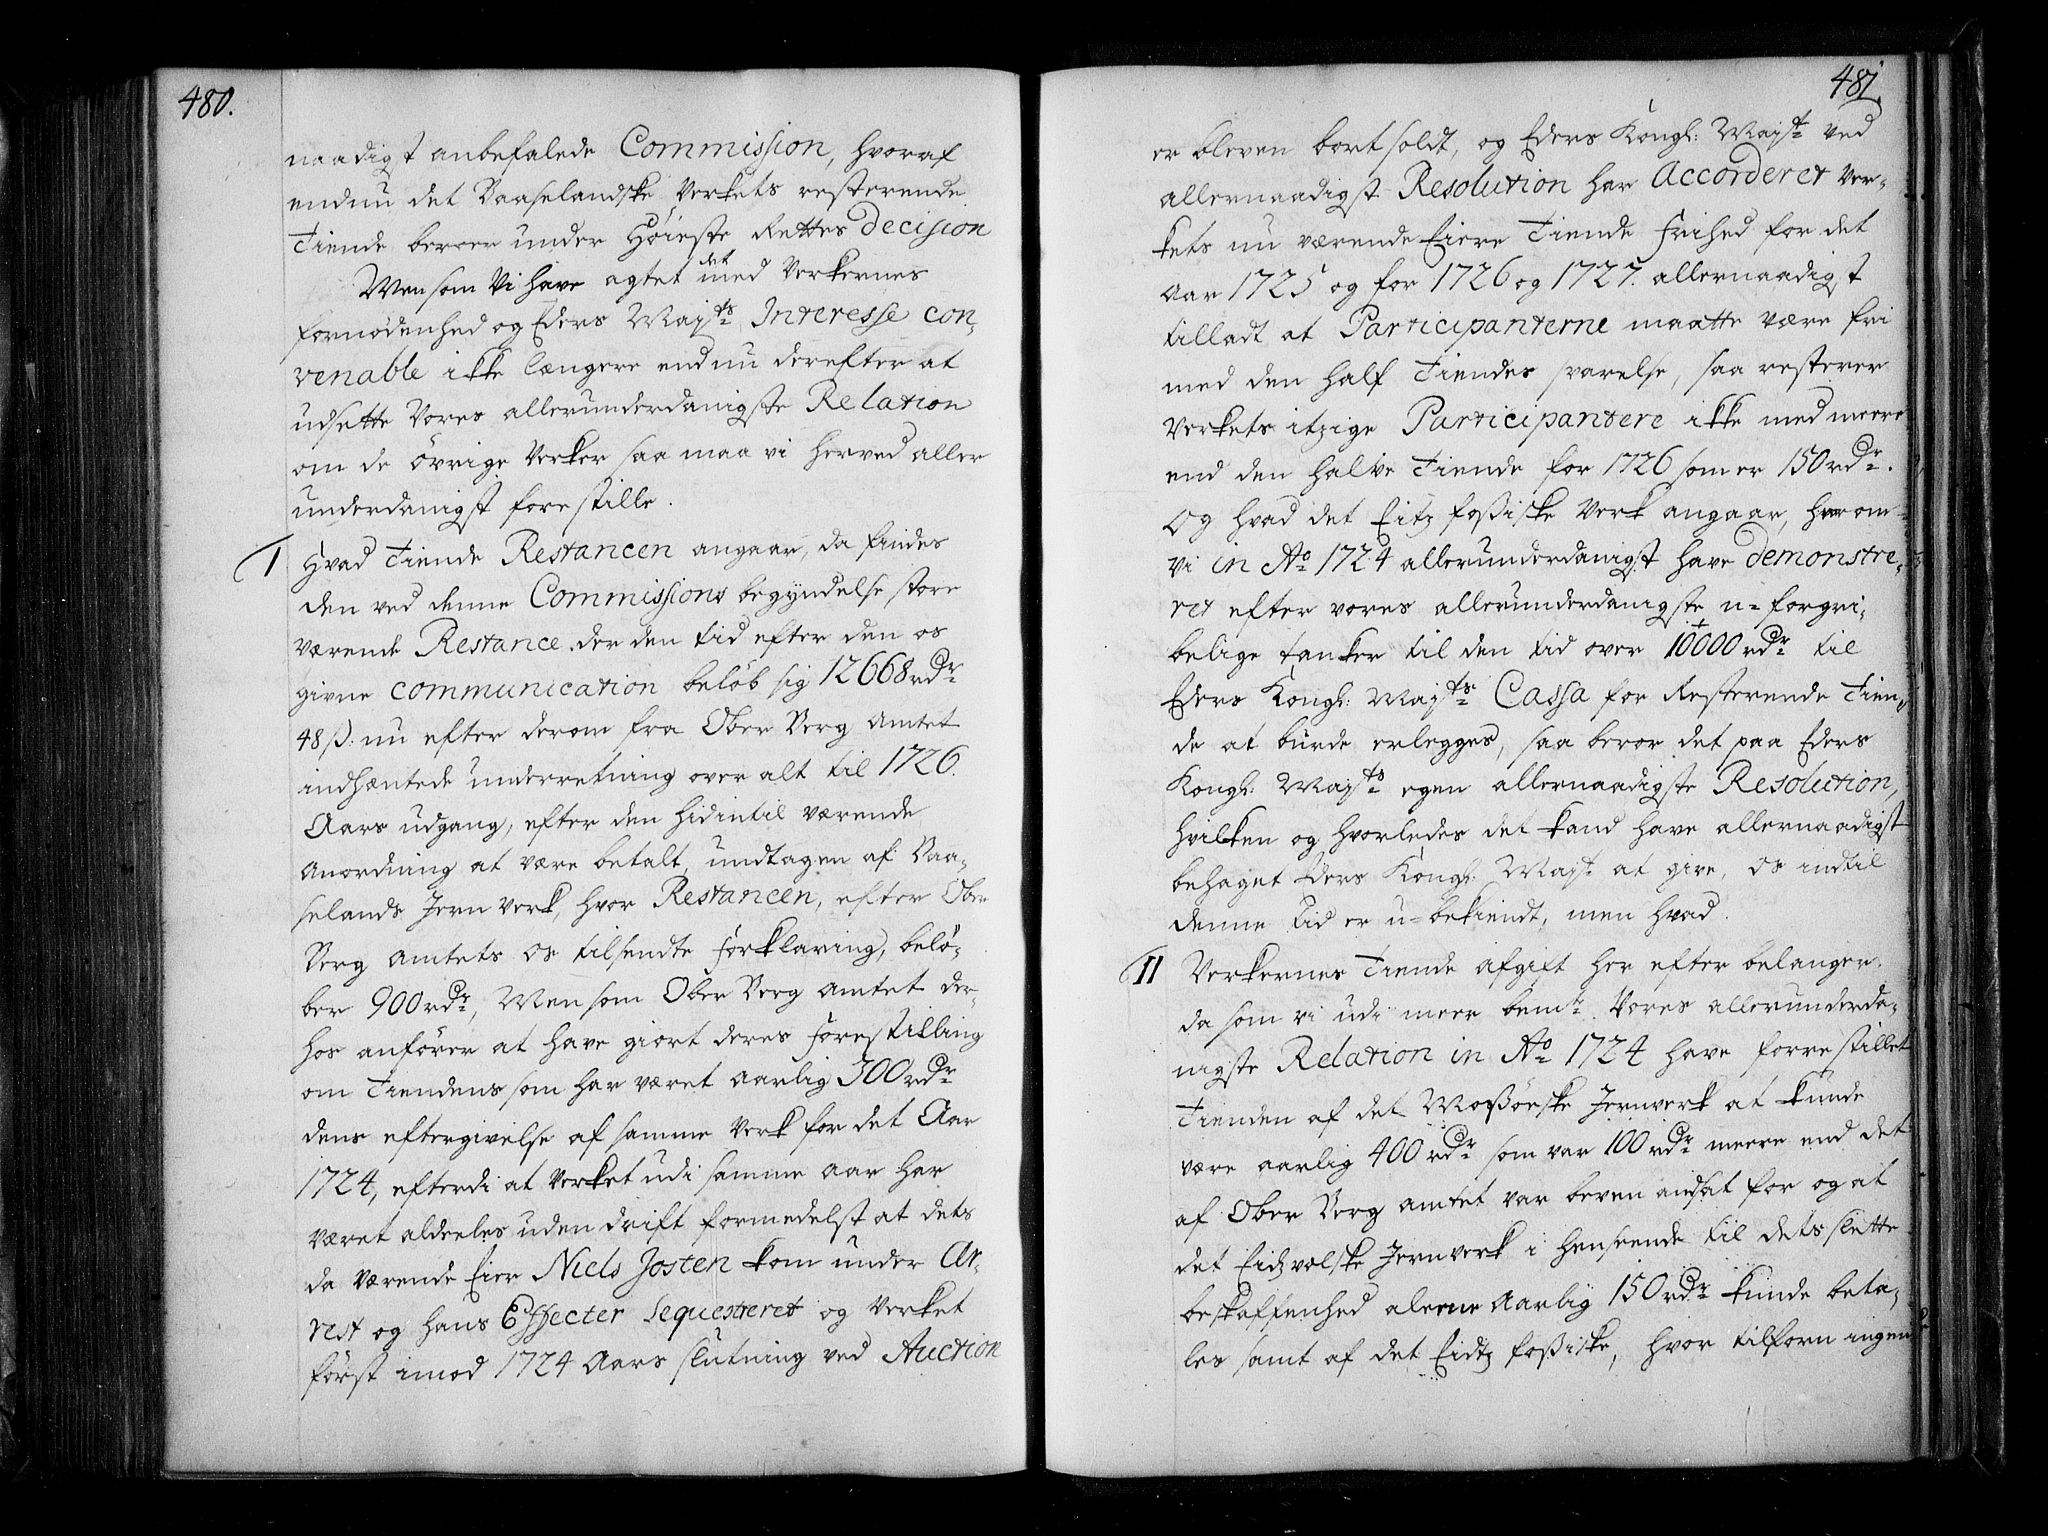 480.
naadigst anbefalede Commission, hvoraf
endnu det Baaselandske Verkets resterende
Tiende beroer under Höieste Rettes decision
Men som Vi have agtet det med Verkernes
fornödenhed og Eders Majts Interesse con-
venable ikke længere endnu derefter at
udsette Vores allerunderdanigste Relation
om de övrige Verker saa maa vi herved aller
underdanigst forestille.
I Hvad Tiende Restancen angaar, da findes
den ved denne Commissions begyndelse store
værende Restance der den tid efter den os
givne communication belöb sig 12668 rdr
48 ß. nu efter derom fra Ober Berg Amtet
indhæntede underretning over alt til 1726.
Aars udgang, efter den hidintil værende
Anordning at være betalt, undtagen af Baa-
selands Jern Verk, hvor Restancen, efter Ober
Berg Amtets os tilsendte forklaring, belö-
ber 900 rdr, Men som Ober Berg Amtet der-
hos anförer at have giort deres forestilling
om Tiendens som har været Aarlig 300 rdr
dens eftergivelse af samme Verk for det Aar
1724, efterdi at Verket udi samme Aar har
været aldeeles uden drift formedelst at dets
da Værende Eier Niels Josten kom under Ar-
rest og hans Effecter Sequestreret og Verket
först imod 1724 Aars slutning ved Auction
481.
er bleven bortsoldt, og Eders Kongl: Majt ved
allernaadigst Resolution har Accorderet Ver-
kets nu værende Eiere Tiende frihed for det
Aar 1725 og for 1726 og 1727. allernaadigst
tilladt at Participanterne maatte være fri
med den half Tiendes svarelse, saa resterer
Verkets itzige Participantere ikke med meere
end den halve Tiende for 1726 som er 150 rdr.
Og hvad det Eitz foßiske Verk angaar, hvorom
Vi in Ao 1724 allerunderdanigst have demonstre-
ret efter vores allerunderdanigste u-forgri-
belige tanker til den tid over 10000 rdr til
Eders Kongl: Majts Cassa for Resterende Tien-
de at burde erlegges, saa beror det paa Eders
Kongl: Majts egen allernaadigste Resolution,
hvilken og hvorledes det kand have allernaadigst
behaget Eders Kongl: Majt at give, os indtil
denne tid er u-bekiendt, men hvad.
II Verkernes Tiende Afgift her efter belanger.
da som vi udi meer bemte Vores allerunderda-
nigste Relation in Ao 1724 have forrestillet
Tienden af det Moßöeske Jernverk at kunde
være aarlig 400 rdr som var 100 rdr meere end det
af Ober Berg Amtet var beven andsat for og at
det Eidzvolske Jernverk i henseende til dets slette
beskaffenhed alerne Aarlig 150 rdr kunde beta-
les samt af det Eidtz foßiske, hvor tilforn ingen